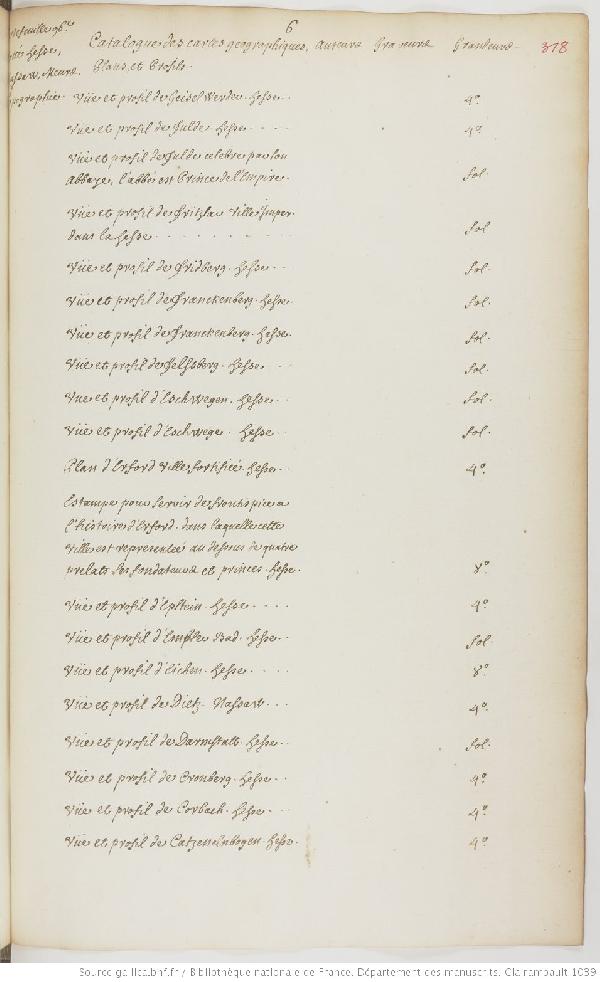 6
Catalogue des cartes geographiques, Auteurs Graveurs Grandeurs 378
Plans, et Profils.
Hesse,
Vüe et profil de Geisel Werder. hesse. 4º
Vüe et profil de Fulde hesse 4º
Vüe et profil de Fulde celebre par son
Abbaye, l'abbé en Prince de l'Empire. fol.
Vüe et profil de Fritzlar Ville Imper.
dans la hesse fol
Vüe et profil de Fridberg. hesse fol.
Vüe et profil de Franckenberg. hesse. fol.
Vüe et profil de Franckenberg. hesse. fol.
Vüe et profil de Felsberg. hesse fol.
Vüe et profil d'Eschwegen. hesse. fol.
Vüe et profil d'Eschwege. hesse fol.
Plan d'Erford Ville fortifiée. hesse. 4º
Estampe pour servir de frontispice a
l'histoire d'Erford. dans laquelle cette
Ville est representée au dessus de quatre
prelats ses fondateurs et princes. hesse. 8º
Vüe et profil d'Epstein. hesse 4º
Vüe et profil d'Embser Bad. hesse fol.
Vüe et profil d'Eichen. hesse 8º
Vüe et profil de Dietz. Nassaw 4º
Vüe et profil de Darmstatt. hesse fol.
Vüe et profil de Cronberg. hesse 4º
Vüe et profil de Corbach. hesse 4º
Vüe et profil de Catzenelnbogen. hesse. 4º
Source gallica.bnf.fr / Bibliothèque nationale de France. Département des manuscrits. Clairambault 1039